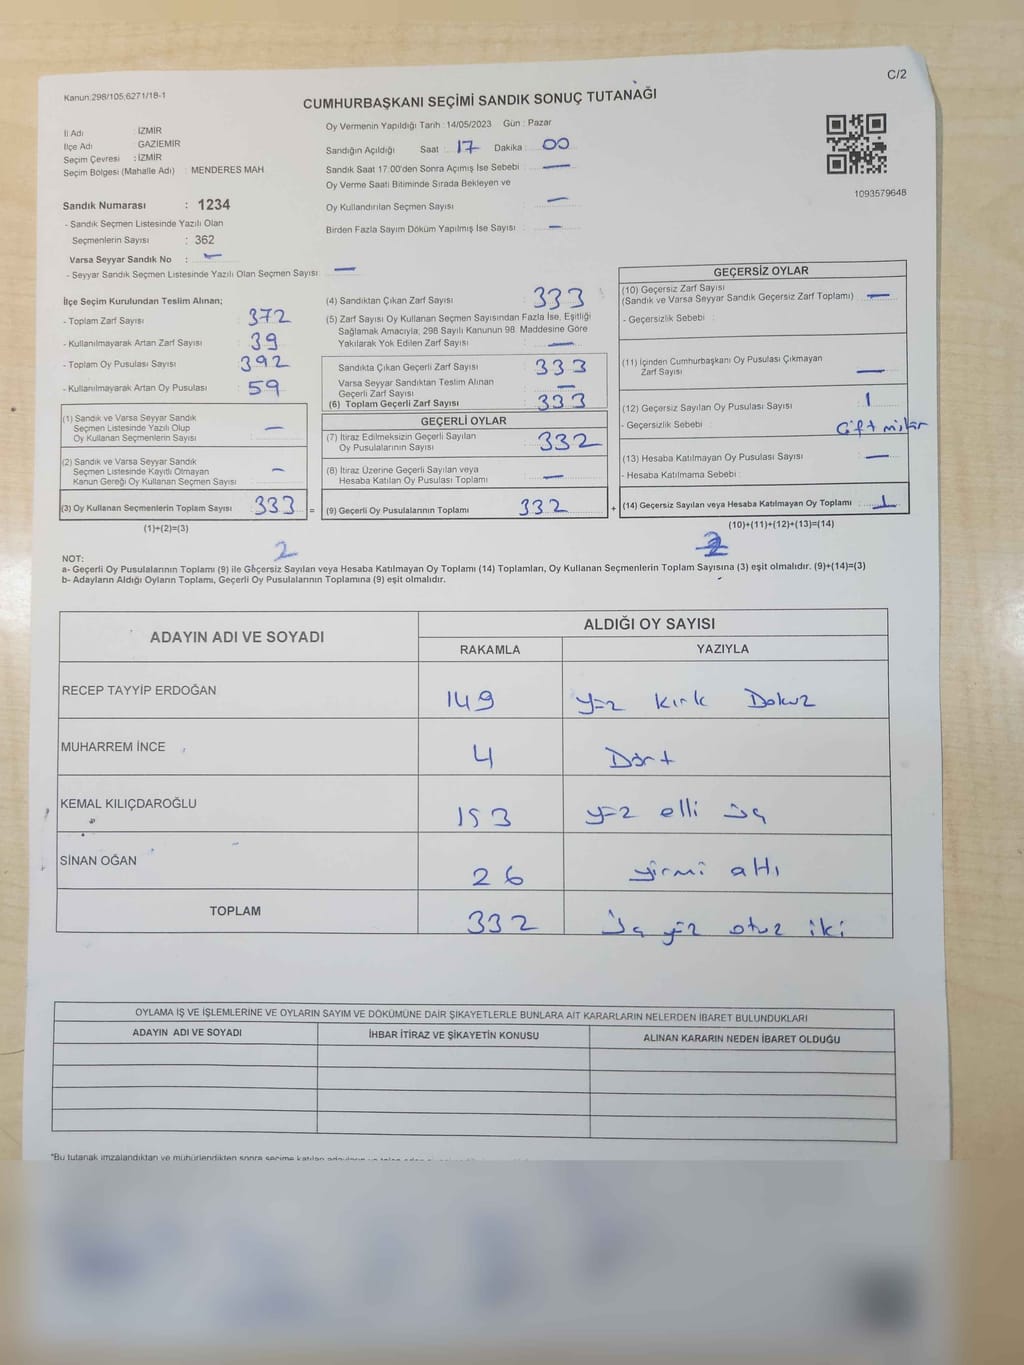 C/2
Kanun:298/105,6271/18-1
CUMHURBAŞKANI SEÇİMİ SANDIK SONUÇ TUTANAĞI
İl Adı : İZMİR
İlçe Adı : GAZİEMİR
Seçim Çevresi : İZMİR
Seçim Bölgesi (Mahalle Adı) : MENDERES MAH
Sandık Numarası : 1234
- Sandık Seçmen Listesinde Yazılı Olan
Seçmenlerin Sayısı : 362
Varsa Seyyar Sandık No : —
- Seyyar Sandık Seçmen Listesinde Yazılı Olan Seçmen Sayısı : —
Oy Vermenin Yapıldığı Tarih : 14/05/2023 Gün : Pazar
Sandığın Açıldığı Saat : 17 Dakika : 00
Sandık Saat 17:00'den Sonra Açımış İse Sebebi : —
Oy Verme Saati Bitiminde Sırada Bekleyen ve
Oy Kullandırılan Seçmen Sayısı : —
Birden Fazla Sayım Döküm Yapılmış İse Sayısı : —
1093579648
İlçe Seçim Kurulundan Teslim Alınan;
- Toplam Zarf Sayısı : 372
- Kullanılmayarak Artan Zarf Sayısı : 39
- Toplam Oy Pusulası Sayısı : 392
- Kullanılmayarak Artan Oy Pusulası : 59
(1) Sandık ve Varsa Seyyar Sandık
Seçmen Listesinde Yazılı Olup
Oy Kullanan Seçmenlerin Sayısı : —
(2) Sandık ve Varsa Seyyar Sandık
Seçmen Listesinde Kayıtlı Olmayan
Kanun Gereği Oy Kullanan Seçmen Sayısı : —
(3) Oy Kullanan Seçmenlerin Toplam Sayısı : 333 =
(1)+(2)=(3)
(4) Sandıktan Çıkan Zarf Sayısı : 333
(5) Zarf Sayısı Oy Kullanan Seçmen Sayısından Fazla İse, Eşitliği
Sağlamak Amacıyla; 298 Sayılı Kanunun 98. Maddesine Göre
Yakılarak Yok Edilen Zarf Sayısı : —
Sandıkta Çıkan Geçerli Zarf Sayısı : 333
Varsa Seyyar Sandıktan Teslim Alınan
Geçerli Zarf Sayısı : —
(6) Toplam Geçerli Zarf Sayısı : 333
GEÇERLİ OYLAR
(7) İtiraz Edilmeksizin Geçerli Sayılan
Oy Pusulalarının Sayısı : 332
(8) İtiraz Üzerine Geçerli Sayılan veya
Hesaba Katılan Oy Pusulası Toplamı : —
(9) Geçerli Oy Pusulalarının Toplamı : 332 +
GEÇERSİZ OYLAR
(10) Geçersiz Zarf Sayısı
(Sandık ve Varsa Seyyar Sandık Geçersiz Zarf Toplamı) : —
- Geçersizlik Sebebi :
(11) İçinden Cumhurbaşkanı Oy Pusulası Çıkmayan
Zarf Sayısı : —
(12) Geçersiz Sayılan Oy Pusulası Sayısı : 1
- Geçersizlik Sebebi : Çift mühür
(13) Hesaba Katılmayan Oy Pusulası Sayısı : —
- Hesaba Katılmama Sebebi :
(14) Geçersiz Sayılan veya Hesaba Katılmayan Oy Toplamı : 1
(10)+(11)+(12)+(13)=(14)
2
2
NOT:
a- Geçerli Oy Pusulalarının Toplamı (9) ile Geçersiz Sayılan veya Hesaba Katılmayan Oy Toplamı (14) Toplamları, Oy Kullanan Seçmenlerin Toplam Sayısına (3) eşit olmalıdır. (9)+(14)=(3)
b- Adayların Aldığı Oyların Toplamı, Geçerli Oy Pusulalarının Toplamına (9) eşit olmalıdır.
ADAYIN ADI VE SOYADI
ALDIĞI OY SAYISI
RAKAMLA YAZIYLA
RECEP TAYYİP ERDOĞAN 149 yüz kırk Dokuz
MUHARREM İNCE 4 Dört
KEMAL KILIÇDAROĞLU 153 yüz elli üç
SİNAN OĞAN 26 yirmi altı
TOPLAM 332 üç yüz otuz iki
OYLAMA İŞ VE İŞLEMLERİNE VE OYLARIN SAYIM VE DÖKÜMÜNE DAİR ŞİKAYETLERLE BUNLARA AİT KARARLARIN NELERDEN İBARET BULUNDUKLARI
ADAYIN ADI VE SOYADI İHBAR İTİRAZ VE ŞİKAYETİN KONUSU ALINAN KARARIN NEDEN İBARET OLDUĞU
*Bu tutanak imzalandıktan ve mühürlendikten sonra seçime katılan